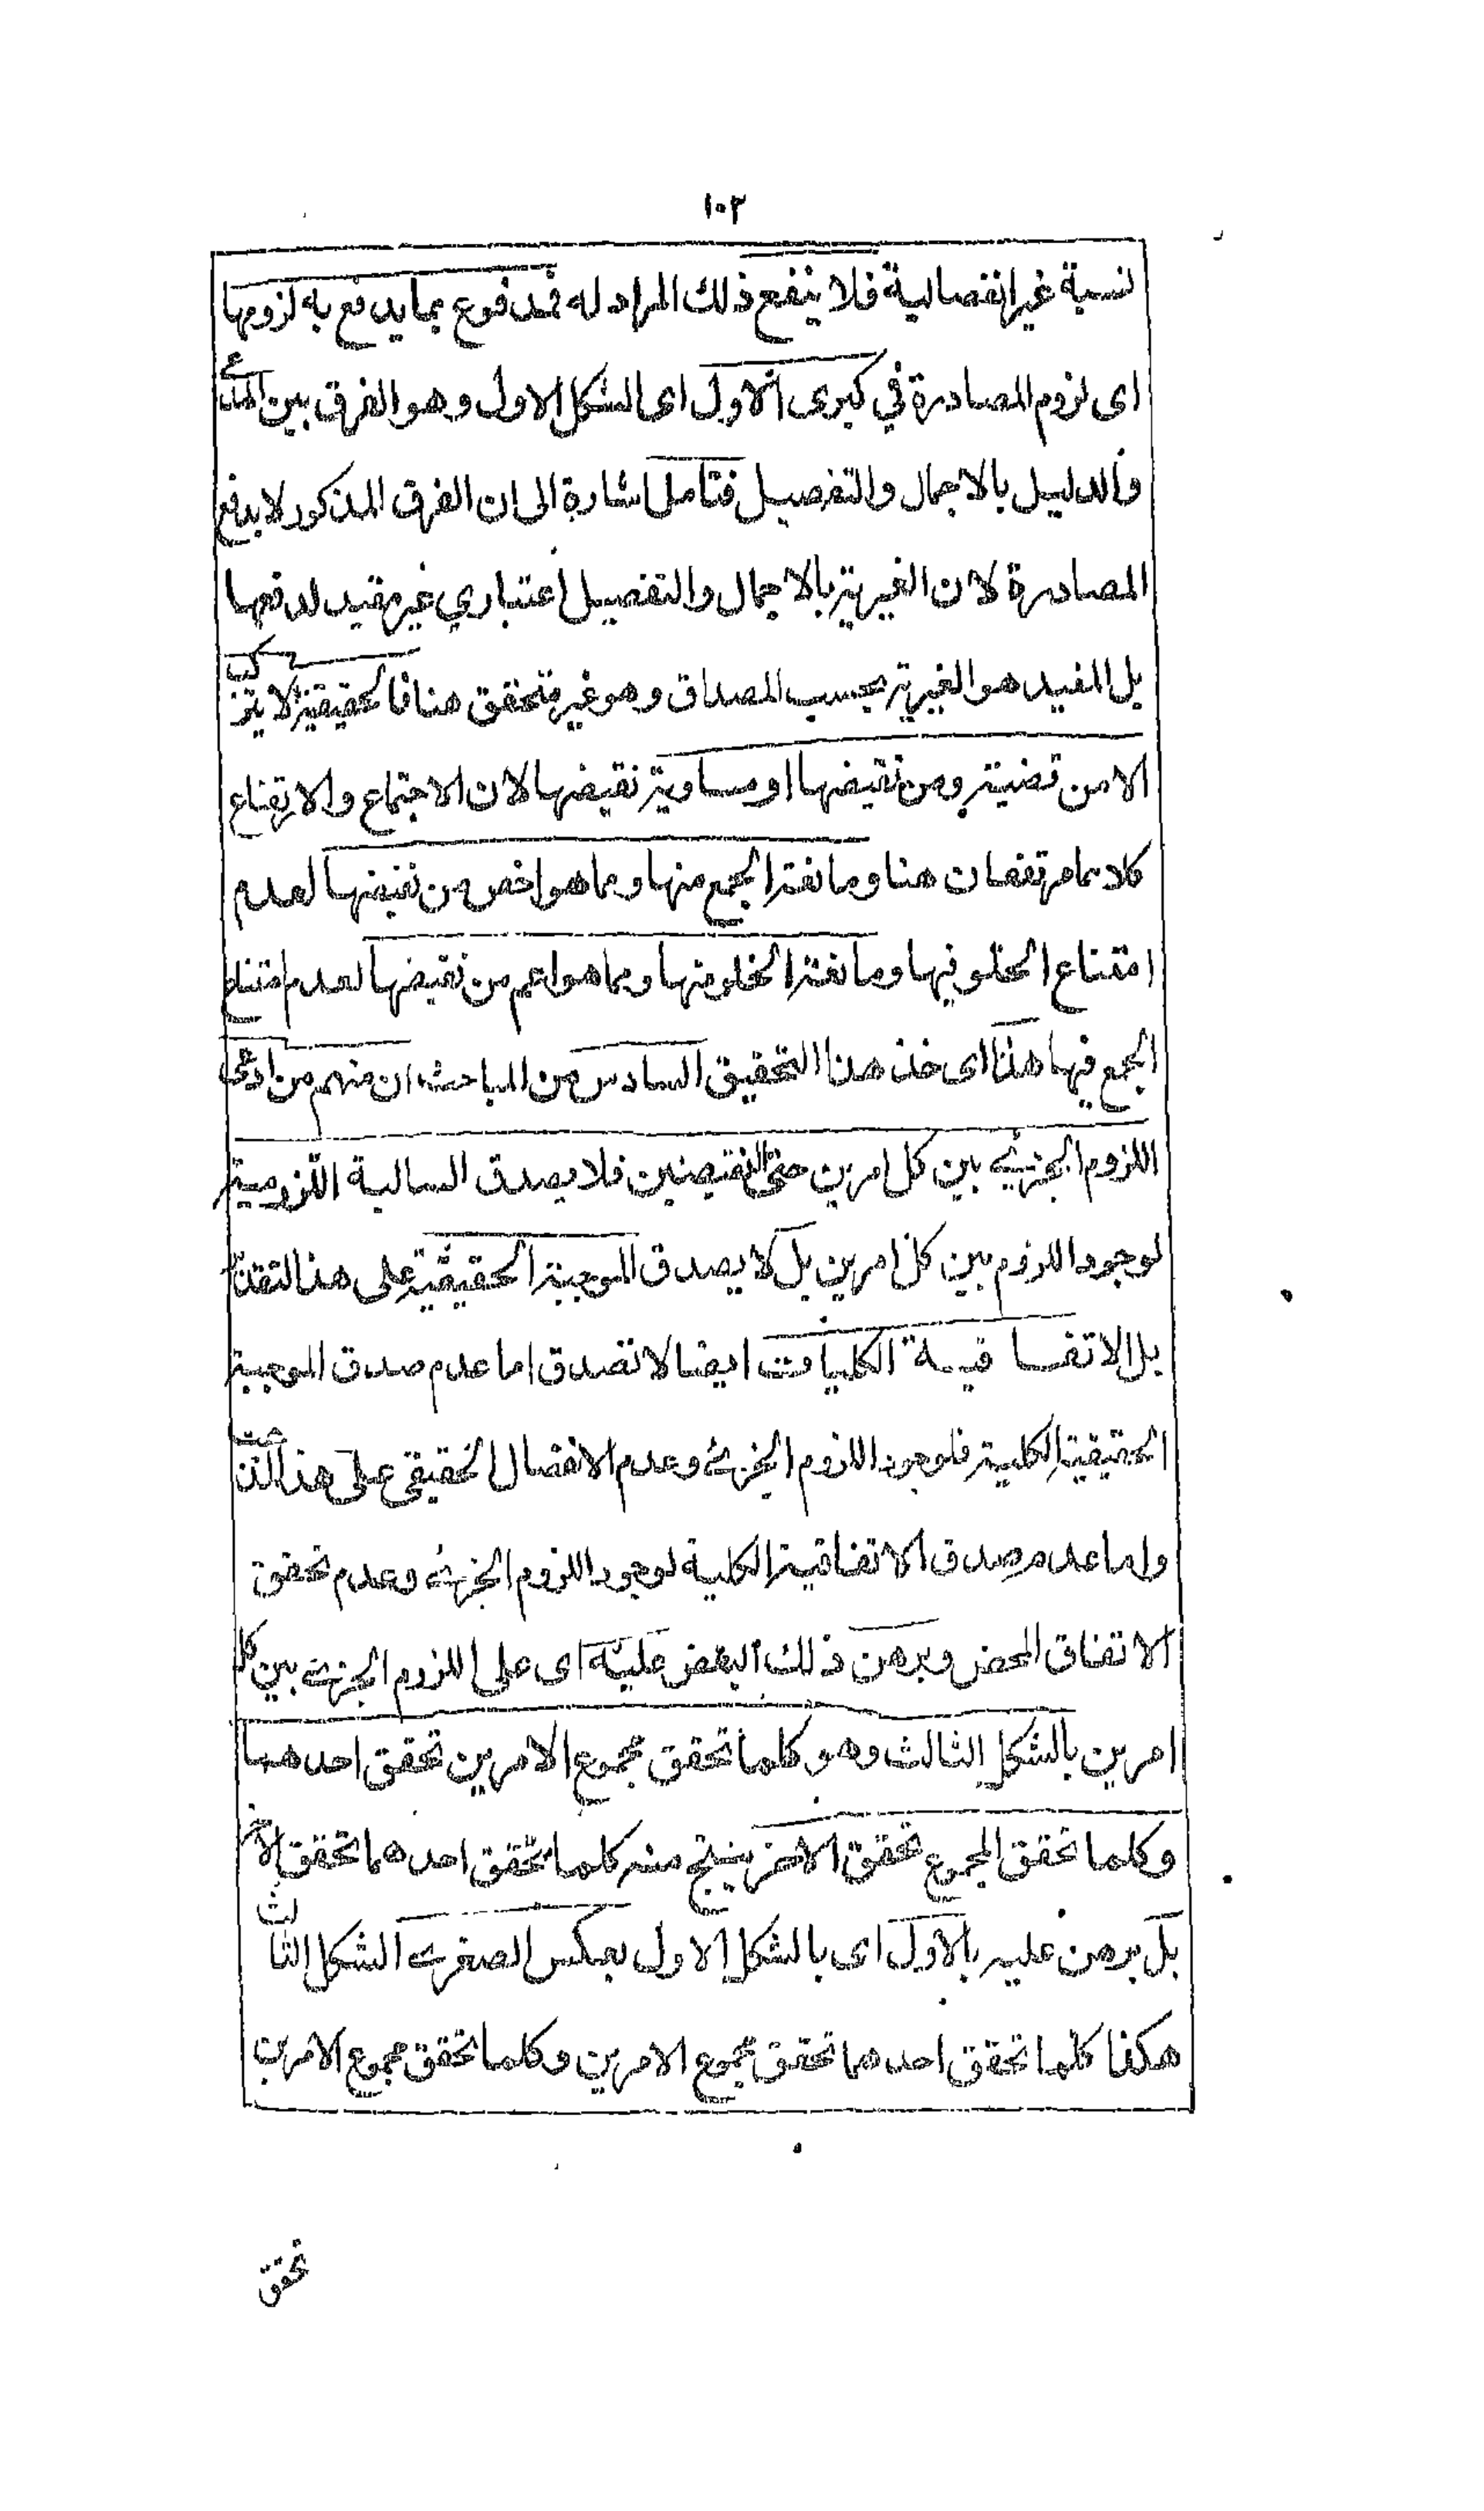 ١٠٣
نسبة غير انفصالية فلا ينفع ذلك المراد له فمدفوع بما يدفع به لزومها
اى لزوم المصادرة في كبرى الاول اى الشكل الاول وهو الفرق بين المدعى
والدليل بالاجمال والتفصيل فتامل اشارة الى ان الفرق المذكور لا يدفع
المصادرة لان الغيرية بالاجمال والتفصيل اعتباري غير مفيد لدفعها
بل المفيد هو الغيرية بحسب المصداق وهو غير متحقق هنا فالحقيقية لا يتركب
الا من قضية ومن نقيضها او مساوية نقيضها لان الاجتماع والارتفاع
كلاهما مرتفعان هنا ومانعة الجمع منها ومما هو اخص من نقيضها لعدم
امتناع الخلو فيها ومانعة الخلو منها ومما هو اعم من نقيضها لعدم امتناع
الجمع فيها هذا اى خذ هذا التحقيق السادس من المباحث ان منهم من ادعى
اللزوم الجزئي بين كل امرين حتى النقيضين فلا يصدق السالبة اللزومية
لوجود اللزوم بين كل امرين بل لا يصدق الموجبة الحقيقية على هذا التقدير
بل الاتفاقية الكليات ايضا لا تصدق اما عدم صدق الموجبة
الحقيقية الكلية فلوجود اللزوم الجزئي وعدم الانفصال الحقيقي على هذا
واما عدم صدق الاتفاقية الكلية لوجود اللزوم الجزئي وعدم تحقق
الاتفاق المحض وبرهن ذلك البعض عليه اى على اللزوم الجزئي بين كل
امرين بالشكل الثالث وهو كلما تحقق مجموع الامرين تحقق احدهما
وكلما تحقق المجموع تحقق الاخر ينتج منه كلما تحقق احدهما تحقق الاخر
بل برهن عليه بالاول اى بالشكل الاول بعكس الصغرى الشكل الثالث
هكذا كلما تحقق احدهما تحقق مجموع الامرين وكلما تحقق مجموع الامرين
تحقق